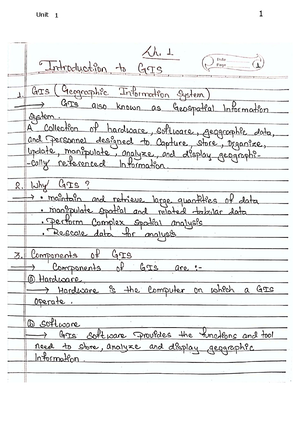 Unit 1
1
Ch. 1
Introduction to GIS
1. GIS (Geographic Information System)
→ GIS also known as Geospatial Information
System.
A collection of hardware, software, geographic data,
and Personnel designed to Capture, store, organize,
update, manipulate, analyze, and display geographi-
-cally referenced Information.
2. Why GIS ?
→ • maintain and retrieve large quantities of data
• manipulate spatial and related tabular data
• Perform Complex spatial analysis
• Rescale data for analysis
3. Components of GIS
→ Components of GIS are :-
① Hardware
→ Hardware is the Computer on which a GIS
operate.
② Software
→ GIS software Provides the functions and tool
need to store, analyze and display geographic
Information.